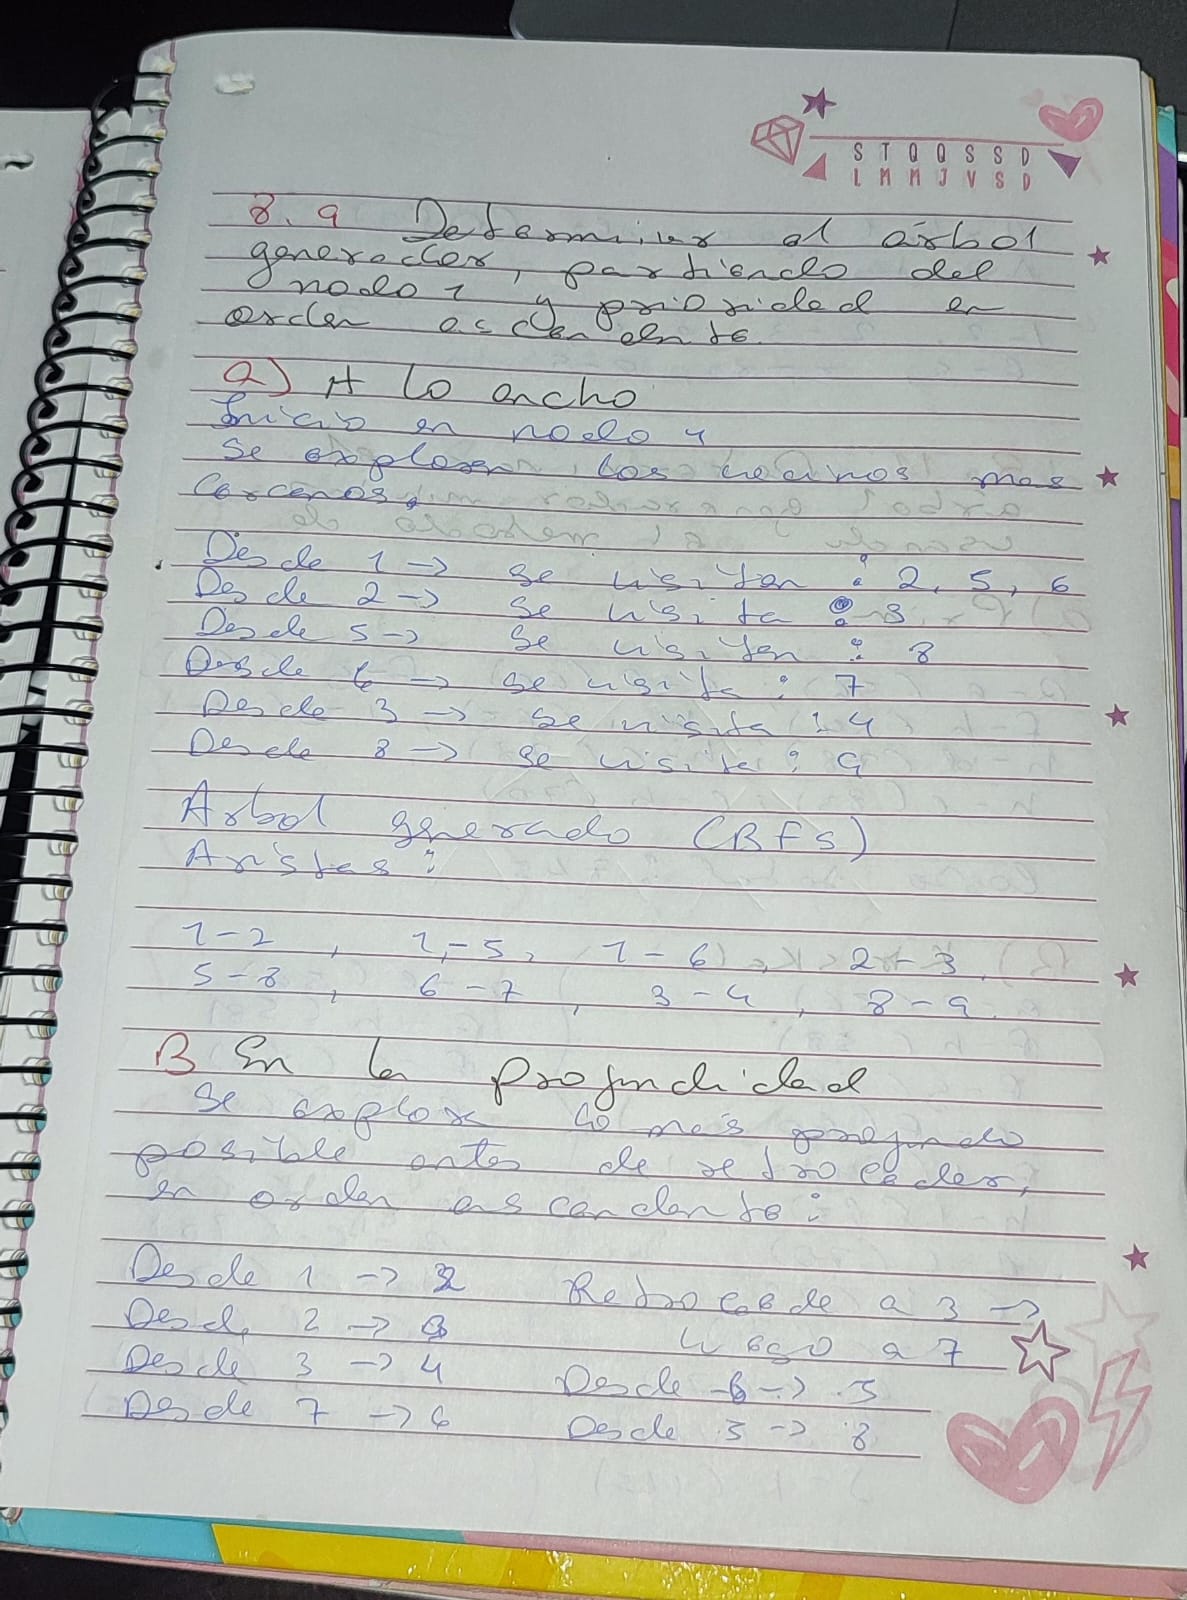 S T Q Q S S D
L M M J V S D
8.9 Determinar el árbol
generador, partiendo del
nodo 1 y prioridad en
orden ascendente.
a) A lo ancho
Inicio en nodo 1
Se exploran los vecinos mas
cercanos.
Desde 1 -> se visitan : 2, 5, 6
Desde 2 -> se visita : 3
Desde 5 -> se visitan : 8
Desde 6 -> se visita : 7
Desde 3 -> se visita : 4
Desde 8 -> se visita : 9
Arbol generado (BFS)
Aristas :
1-2 , 1-5, 1-6, 2-3,
5-8 , 6-7 , 3-4 , 8-9.
B En la profundidad
Se explora lo más profundo
posible antes de retroceder,
en orden ascendente :
Desde 1 -> 2
Desde 2 -> 3
Desde 3 -> 4
Desde 7 -> 6
Retrocede a 3 ->
luego a 7
Desde 6 -> 5
Desde 5 -> 8